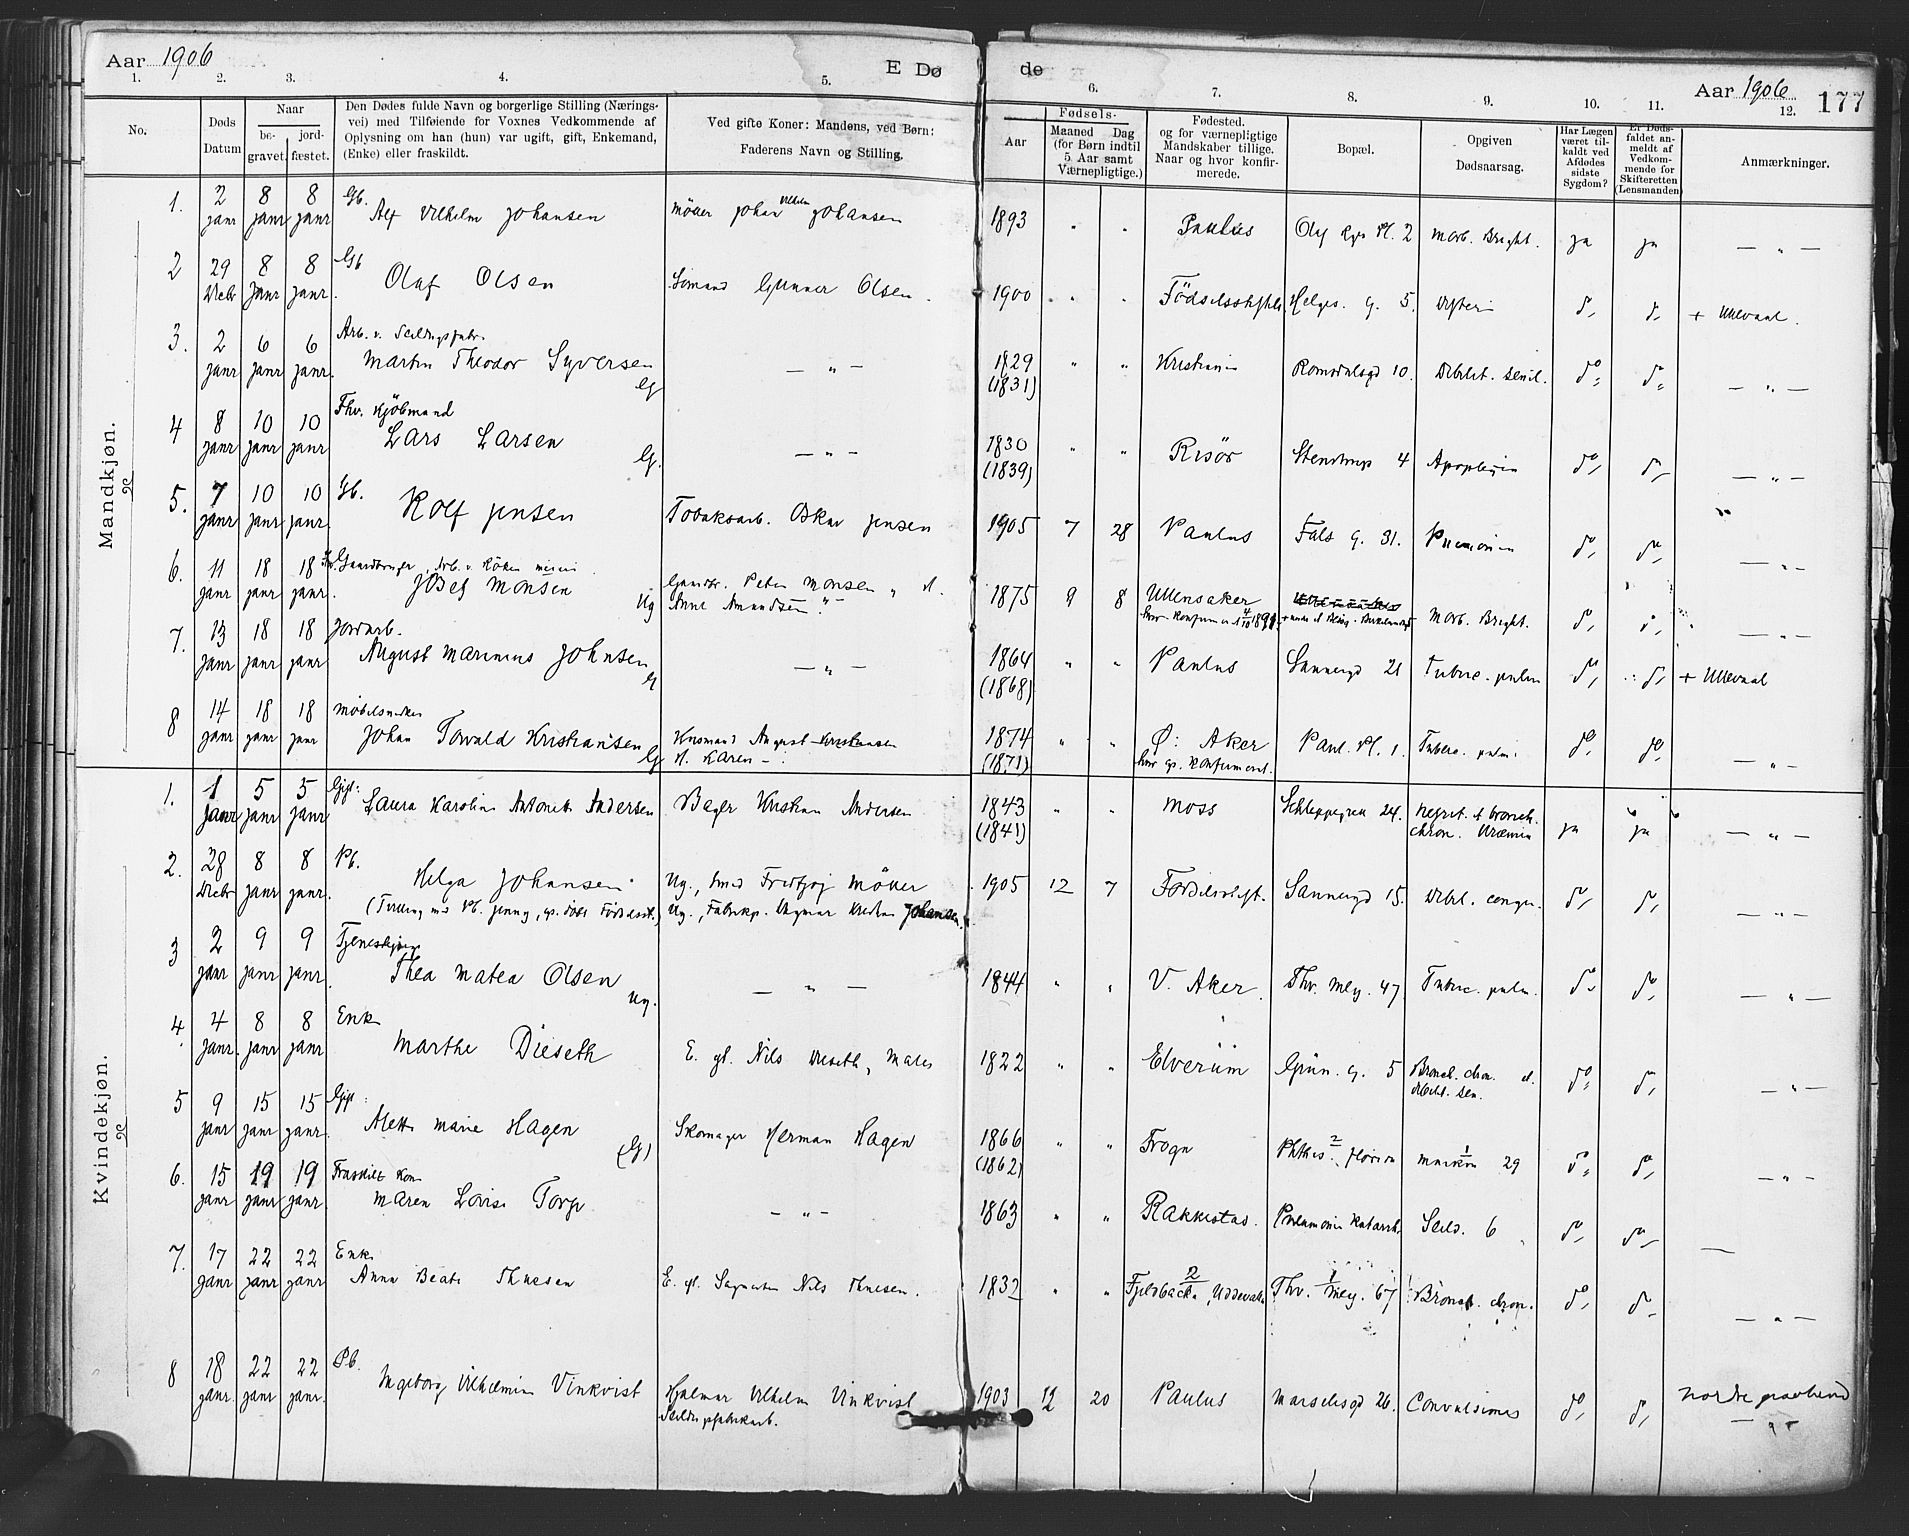 Aar 1906
E Dø de
Aar 1906
177
1. 2. 3. 4. 5. 6. 7. 8. 9. 10. 11. 12.
No.
Døds Datum
Naar
be- gravet.
jord- fæstet.
Den Dødes fulde Navn og borgerlige Stilling (Nærings-
vei) med Tilføiende for Voxnes Vedkommende af
Oplysning om han (hun) var ugift, gift, Enkemand,
(Enke) eller fraskildt.
Ved gifte Koner: Mandens, ved Børn:
Faderens Navn og Stilling.
Fødsels-
Aar
Maaned Dag
(for Børn indtil
5 Aar samt
Værnepligtige.)
Fødested.
og for værnepligtige
Mandskaber tillige.
Naar og hvor konfir-
merede.
Bopæl.
Opgiven
Dødsaarsag.
Har Lægen
været til-
kaldt ved
Afdødes
sidste
Sygdom?
Er Døds-
faldet an-
meldt af
Vedkom-
mende for
Skifteretten
(Lensmanden)
Anmærkninger.
Mandkjøn.
1. 2 Janr 8 Janr 8 Janr Gb. Alf Vilhelm Johansen Møller Johan Vilhelm Johansen 1893 " " Paulus Olaf Rys Pl. 2 Morb. Bright. ja ja — " —
2 29 Decbr 8 Janr 8 Janr. Gb Olaf Olsen Sømand Gunner Olsen. 1900 " " Fødselsstiftels Helges. g. 5. Difteri do do + Ullevaal.
3. 2 Janr 6 Janr 6 Janr. Arb. v. Seildugsfabr.
Martin Theodor Syversen G — " — 1829 (1831) " " Kristiania Romsdalsgd 10. Debilit. senil. do do — " —
4 8 Janr 10 Janr 10 Janr Fhv. Kjøbmand
Lars Larsen G. — " — 1830 (1839) " " Risør Stenstrups 4 Apoplexia do do — " —
5. 7 Janr 10 Janr 10 Janr. Gb. Rolf Jensen Tobaksarb. Oskar Jensen 1905 7 28 Paulus Fals g. 31. Pneumonia do do — " —
6. 11 Janr 18 Janr 18 Janr Gaardbruger, Arb. v.
Monsen Ug Gaardbr. Peter Monsen
Anne Amundsen 1875 9 8 Ullensaker Morb. Bright. do do — " —
7. 13 Janr 18 Janr 18 Janr Jordarb.
August Marinius Johnsen G — " — 1864 (1868) " " Paulus Sannergd 21 Tuberc. pulm do do + Ullevaal
8 14 Janr 18 Janr 18 Janr Møbelsnedker
Johan Torvald Kristiansen G Husmand August Kristiansen
Karen 1874 (1871) " " Ø. Aker Paul. Pl. 1. Tuberc. pulm. do do — " —
Kvindekjøn.
1. 1 Janr 5 Janr 5 Janr Gift: Laura Karoline Antonette Andersen Bager Kristian Andersen 1843 (1841) " " Moss Schleppegrels 24. Nefrit. et bronch.
chron. Uræmia ja ja — " —
2. 28 Decbr 8 Janr 8 Janr. Pb. Helga Johansen
(Tvilling med Pb. Jenny, Ug., Smed Fredtjof Møller
Ug., Fabrikp. Dagmar Johansen. 1905 12 7 Fødselsstift. Sannergd 15. Debil. congen. do do — " —
3 2 Janr 9 Janr 9 Janr. Tjenestepige
Thea Matea Olsen Ug. — " — 1844 " " V. Aker. Thv. Mey. 47. Tuberc. pulm. do do — " —
4. 4 Janr. 8 Janr 8 Janr Enke
Marthe Dieseth E. af. Nils Dieseth, Maler 1822 " " Elverum Grün. g. 5 Bronch. chron. et.
debil. sen. do do — " —
5 9 Janr 15 Janr 15 Janr. Gift:
Alette Marie Hagen (G) Skomager Herman Hagen 1866 (1862) " " Frogn 2 1 29 do do — " —
6. 15 Janr 19 Janr 19 Janr Fraskilt Kone
Maren Lovise Torp — " — 1863 " " Rakkestad. Pneumonia Katarrh. Seild. 6 do do —
7. 17 Janr 22 Janr 22 Janr Enke
Anna Beate Thuesen E. af. Nils Thuesen. 1832 " " Fjeldbacka, Uddevalla 2 Thv. Mey. 67 1 Bronch. chron. do do — " —
8 18 Janr. 22 Janr 22 Janr. Pb. Ingeborg Vilhelmine Vinkvist Hjalmar Vilhelm Vinkvist
Seildugsfabrikarb. 1903 12 20 Paulus Marselisgd 26. Convulsiones do do Nordre gravlund